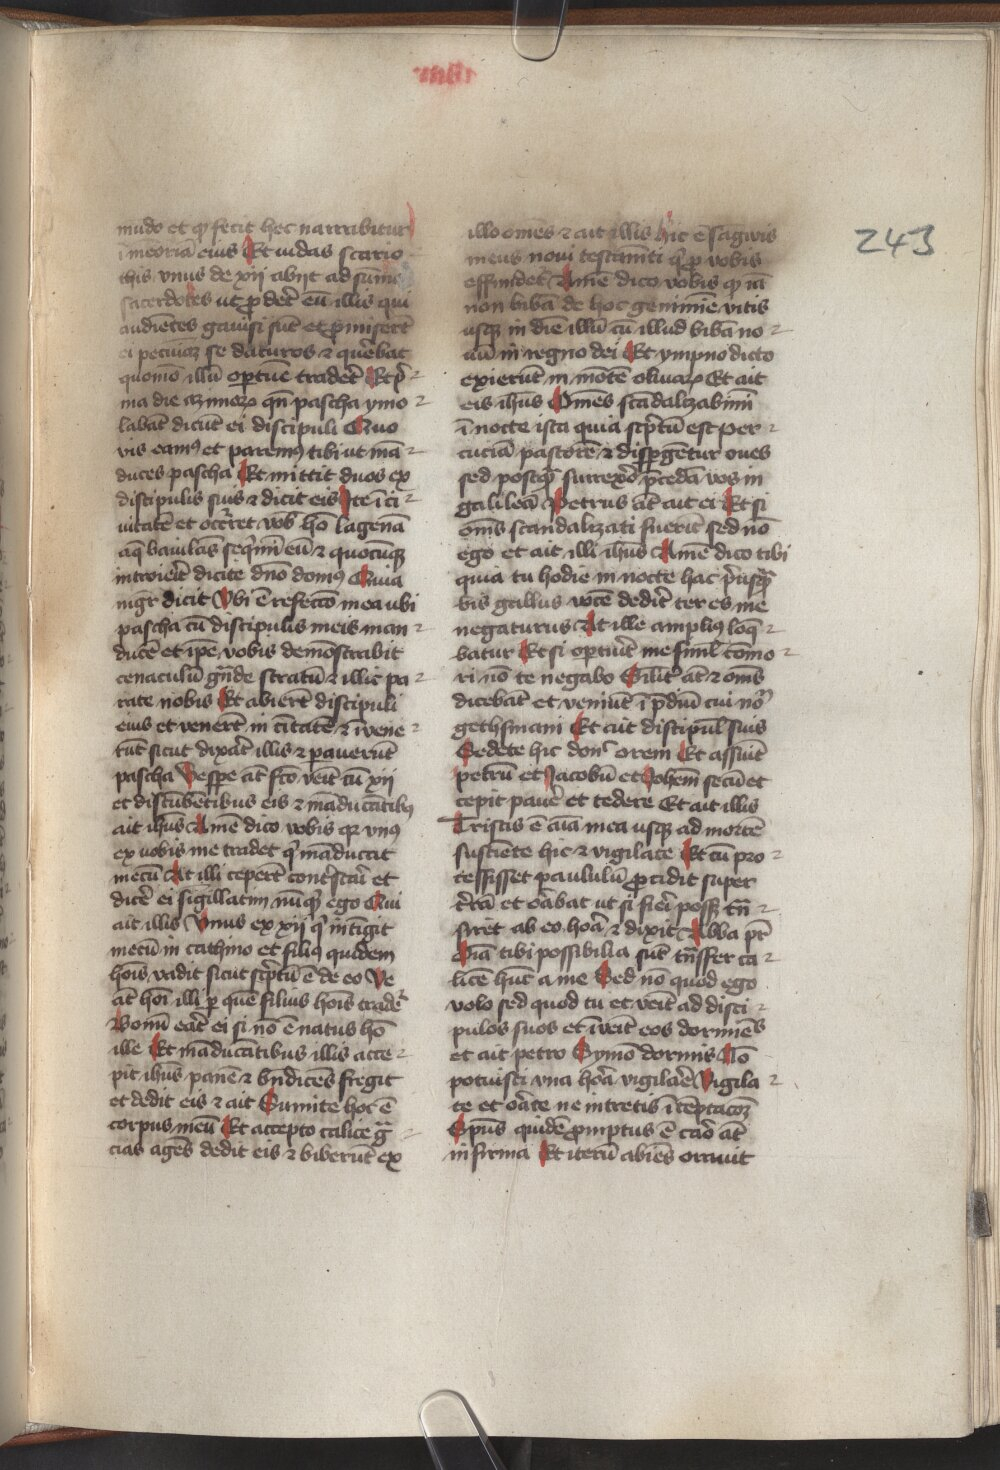 243
mūdo et qͥ fecit hec narrabitur
ī meoriā eius Et iudas scario
this vnus de xij abijt ad sūmos
sacerdotes ut ꝓderet eū illis qui
audiētes gauisi sūt et ꝓmiserūt
ei pecuiā se daturos ⁊ querebat
quomō illū oportūe traderet Et pͥ
ma die azimoꝝ qn̄ pascha ymo
labāt dicūt ei discipuli Quo
vis eamꝰ et paremꝰ tibi ut mā
duces pascha Et mittit duos ex
discipulis suis ⁊ dicit eis Ite ī ci
uitatē et occͬret vob̄ hō lagenā
aq̄ baiulās seqͥmī eū ⁊ quocūqꝫ
introierit dicite dn̄o domꝰ Quia
mgr̄ dicit Vbi ē refectō mea ubi
pascha cū discipulis meis man
ducē et ip̄e vobis demōstrabit
cenaculū gn̄de stratū ⁊ illic pa
rate nobis Et abierūt discipuli
eius et venerūt in ciuitatē ⁊ īvene
rūt sicut dixat̄ illis ⁊ pauerūt
pascha Vesp̄e āt fc̄o veīt cū xij
et discūbētibus eis ⁊ māducātibꝰ
ait ihūs Amē dico vobis qꝛ vnꝰ
ex uobis me tradet qͥ māducat
mecū At illi ceperūt contͥstari et
dicē̄ ei sigillatim nūqͥd ego Qui
ait illis Vnus ex xij qͥ intīgit
mecū in cathino et filiꝰ quidem
hoīs vadit sicut scp̄tū ē de eo Ve
āt hoī illi ꝑ quē filius hoīs tradet̄
Bonū eat̄ ei si nō ē natus hō
ille Et māducātibus illis acce
pit ihūs panē ⁊ bn̄dicēs fregit
et dedit eis ⁊ ait Sumite hoc ē
corpus meū Et accepto calice gͣ
cias agēs dedit eis ⁊ biberūt ex
illo om̄es ⁊ ait illis hic ē sāgwis
meus noui testam̄ti qͥ ꝓ vobis
effundet̄ Amē dico vobis qͥ iā
non bibā de hoc genimīe vitis
usqꝫ in diē illū cū illud bibā no
uū in regno dei Et ympno dicto
exierūt in mōtē oliuaꝝ Et ait
eis ihūs Om̄es scādalizabimī
ī nocte ista quia scp̄tū est Per
cuciā pastorē ⁊ disꝑgētur oues
sed postqͣ surrexōͤ p̄cedā vos in
galileā Petrus āt ait ei Et si
om̄s scandalizati fuerīt sed nō
ego et ait illi ihūs Amē dico tibi
quia tu hodie in nocte hac pͥusqͣ
bis gallus vocē dedit̄ ter es me
negaturus At ille ampliꝰ loq̄
batur Et si oportueͬ me siml̄ cōmo
ri nō te negabo Silit̄ āt ⁊ om̄s
dicebāt et veniūt ī p̄diū cui nōͫ
gethsmani Et ait discipul̄ suis
Sedete hic donͨ orem Et assūit
petrū et Jacobū et Johēm secū et
cepit pauē̄ et tedere Et ait illis
Tristis ē aīa mea usqꝫ ad mortē
sustiēte hic ⁊ vigilate Et cū pro
cessisset paululū ꝓcidit super
tr̄rā et orābat ut si fiē̄i posset trā
siret ab eo horā ⁊ dixit Abba pr̄
Oīā tibi possibilia sūt trāsfer ca
licē hūc a me Sed nō quod ego
volo sed quod tu et veīt ad disci
pulos suos et īveīt eos dormiēs
et ait petro Symō dormis Nō
potuisti vna horā vigilare Vigila
te et orāte ne intretis ī tēptacōꝫ
Spūs quidē ꝓmptus ē caro āt
infirma Et iterū abiēs orauit